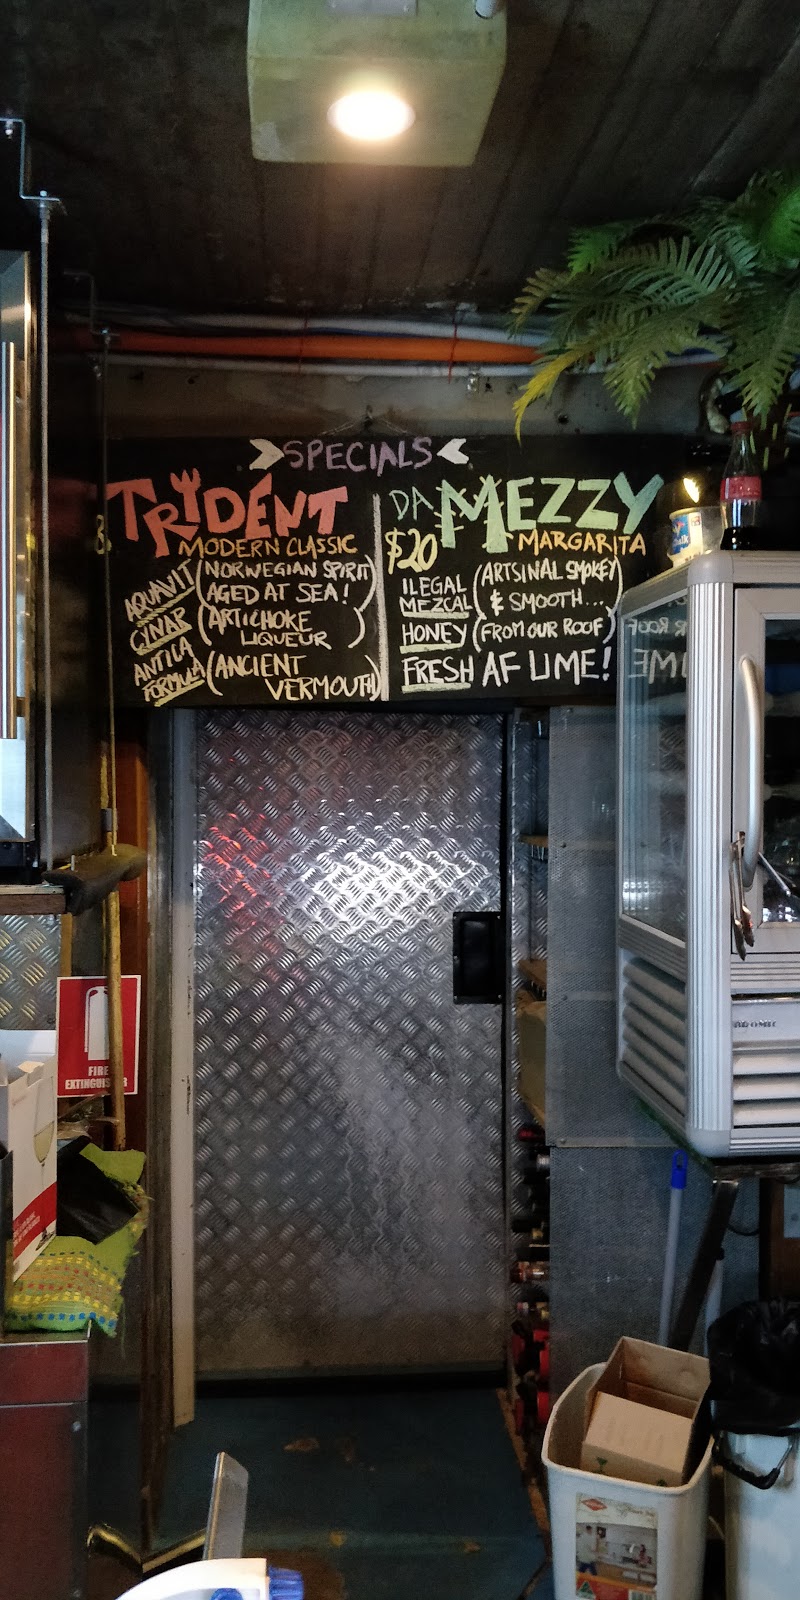 SPECIALS
TRIDENT
MODERN CLASSIC
AQUAVIT (NORWEGIAN SPIRIT
AGED AT SEA!)
CYNAR (ARTICHOKE
LIQUEUR)
ANTICA
FORMULA (ANCIENT
VERMOUTH)
DA MEZZY
$20 MARGARITA
ILEGAL
MEZCAL (ARTSINAL SMOKEY
& SMOOTH...)
HONEY (FROM OUR ROOF)
FRESH AF LIME!
FIRE
EXTINGUISHER